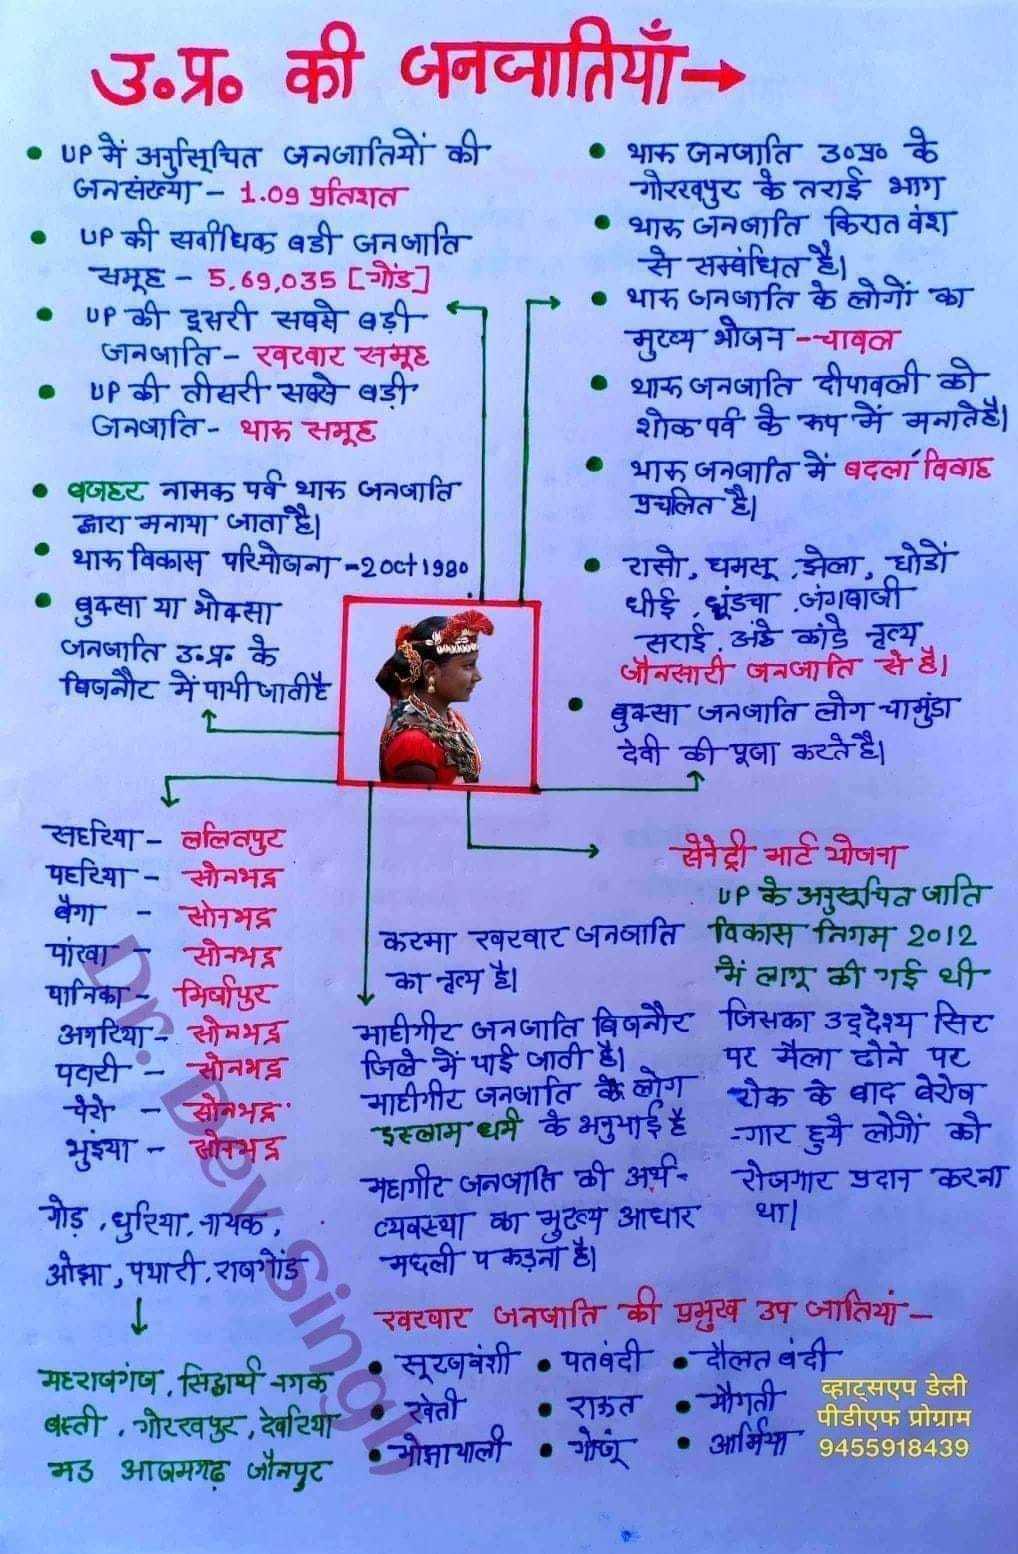 उ॰प्र॰ की जनजातियाँ→
• UP में अनुसूचित जनजातियों की
जनसंख्या – 1.09 प्रतिशत
• UP की सर्वाधिक बडी जनजाति
समूह – 5,69,035 [गोंड]
• UP की दूसरी सबसे बड़ी
जनजाति – खरवार समूह
• UP की तीसरी सबसे बड़ी
जनजाति - थारू समूह
• बजहर नामक पर्व थारू जनजाति
द्वारा मनाया जाता है।
• थारू विकास परियोजना -2 oct 1980
• बुक्सा या भोक्सा
जनजाति उ.प्र. के
बिजनौर में पायी जाती है
• थारू जनजाति उ०प्र० के
गोरखपुर के तराई भाग
• थारू जनजाति किरात वंश
से सम्बंधित है।
• थारू जनजाति के लोगों का
मुख्य भोजन -- चावल
• थारू जनजाति दीपावली को
शोक पर्व के रूप में मनाते है।
• थारू जनजाति में बदला विवाह
प्रचलित है।
• रासो, घमसू, झेला, घोडों
धीई, घुंडचा, जंगबाजी
सराई, अंडे कांडे नृत्य
जौनसारी जनजाति से है।
• बुक्सा जनजाति लोग चामुंडा
देवी की पूजा करते है।
सहरिया – ललितपुर
पहरिया – सोनभद्र
बैगा – सोनभद्र
पांखा – सोनभद्र
पानिका – मिर्जापुर
अगरिया – सोनभद्र
पटारी – सोनभद्र
चेरो – सोनभद्र
भुंइया – सोनभद्र
गोड़, धुरिया, नायक,
ओझा, पथारी, राजगोंड
महाराजगंज, सिद्धार्थ नगर
बस्ती, गोरखपुर, देवरिया
मउ आजमगढ़ जौनपुर
करमा खरवार जनजाति
का नृत्य है।
माहीगीर जनजाति बिजनौर
जिले में पाई जाती है।
माहीगीर जनजाति के लोग
इस्लाम धर्म के अनुयाई है
महागीर जनजाति की अर्थ-
व्यवस्था का मुख्य आधार
मछली पकड़ना है।
सेनेट्री मार्ट योजना
UP के अनुसूचित जाति
विकास निगम 2012
में लागू की गई थी
जिसका उद्देश्य सिर
पर मैला ढोने पर
रोक के बाद बेरोज
-गार हुये लोगों को
रोजगार प्रदान करना
था।
खरवार जनजाति की प्रमुख उप जातियां –
• सूरजवंशी • पतबंदी • दौलत बंदी
• खेती • राऊत • मौगती
• मोझयाली • गोजूं • आर्मिया
व्हाट्सएप डेली
पीडीएफ प्रोग्राम
9455918439
Dr. Dev singh